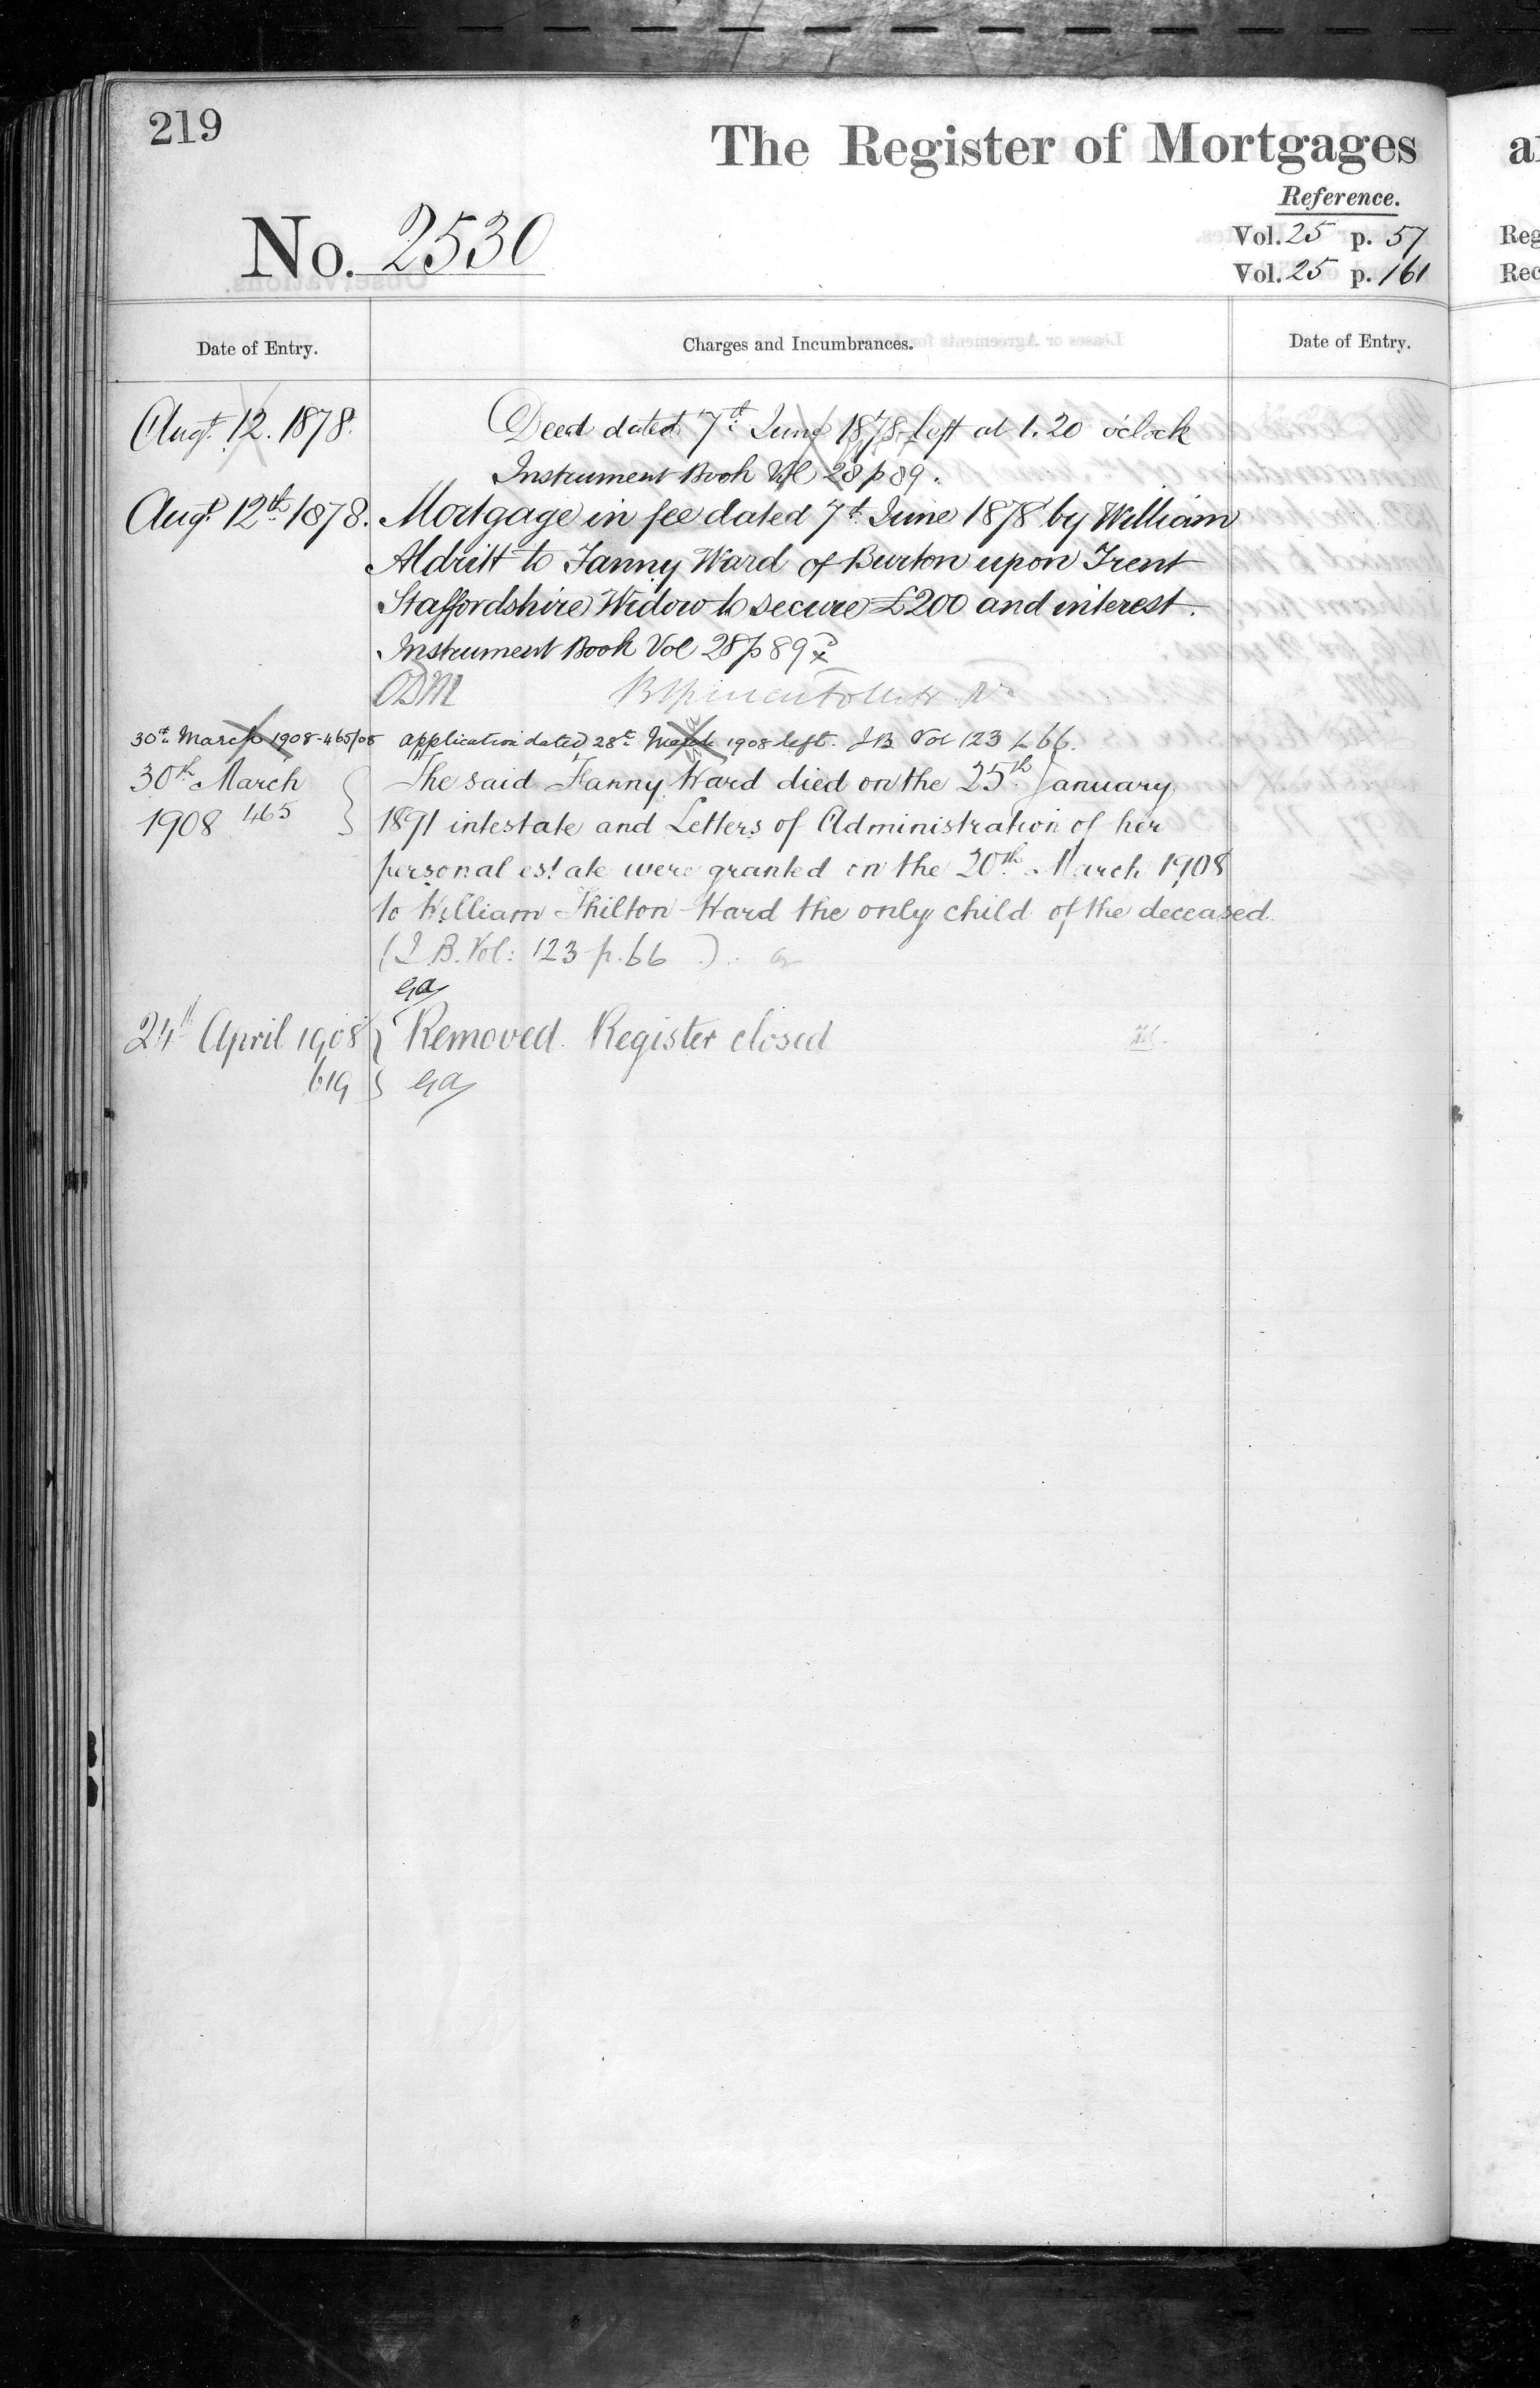 219
The Register of Mortgages
Reference.
No. 2530
Vol. 25 p. 57
Vol. 25 p. 161
Date of Entry.
Charges and Incumbrances.
Date of Entry.
Augt. 12. 1878.
Deed dated 7th June 1878 left at 1.20 o'clock
Instrument Book Vol 28 p 89.
Augt. 12th 1878.
Mortgage in fee dated 7th June 1878 by William
Aldritt to Fanny Ward of Burton upon Trent
Staffordshire Widow to secure £200 and interest.
Instrument Book Vol 28 p 89
ODM
30th March 1908-465/08
application dated 28th March 1908 left. I B Vol 123 p 66.
30th March
1908 465
The said Fanny Ward died on the 25th January
1891 intestate and Letters of Administration of her
personal estate were granted on the 20th March 1908
to William Ward the only child of the deceased
(I. B. Vol: 123 p. 66 ).
24th April 1908
619
Removed. Register closed
a
Reg
Rec